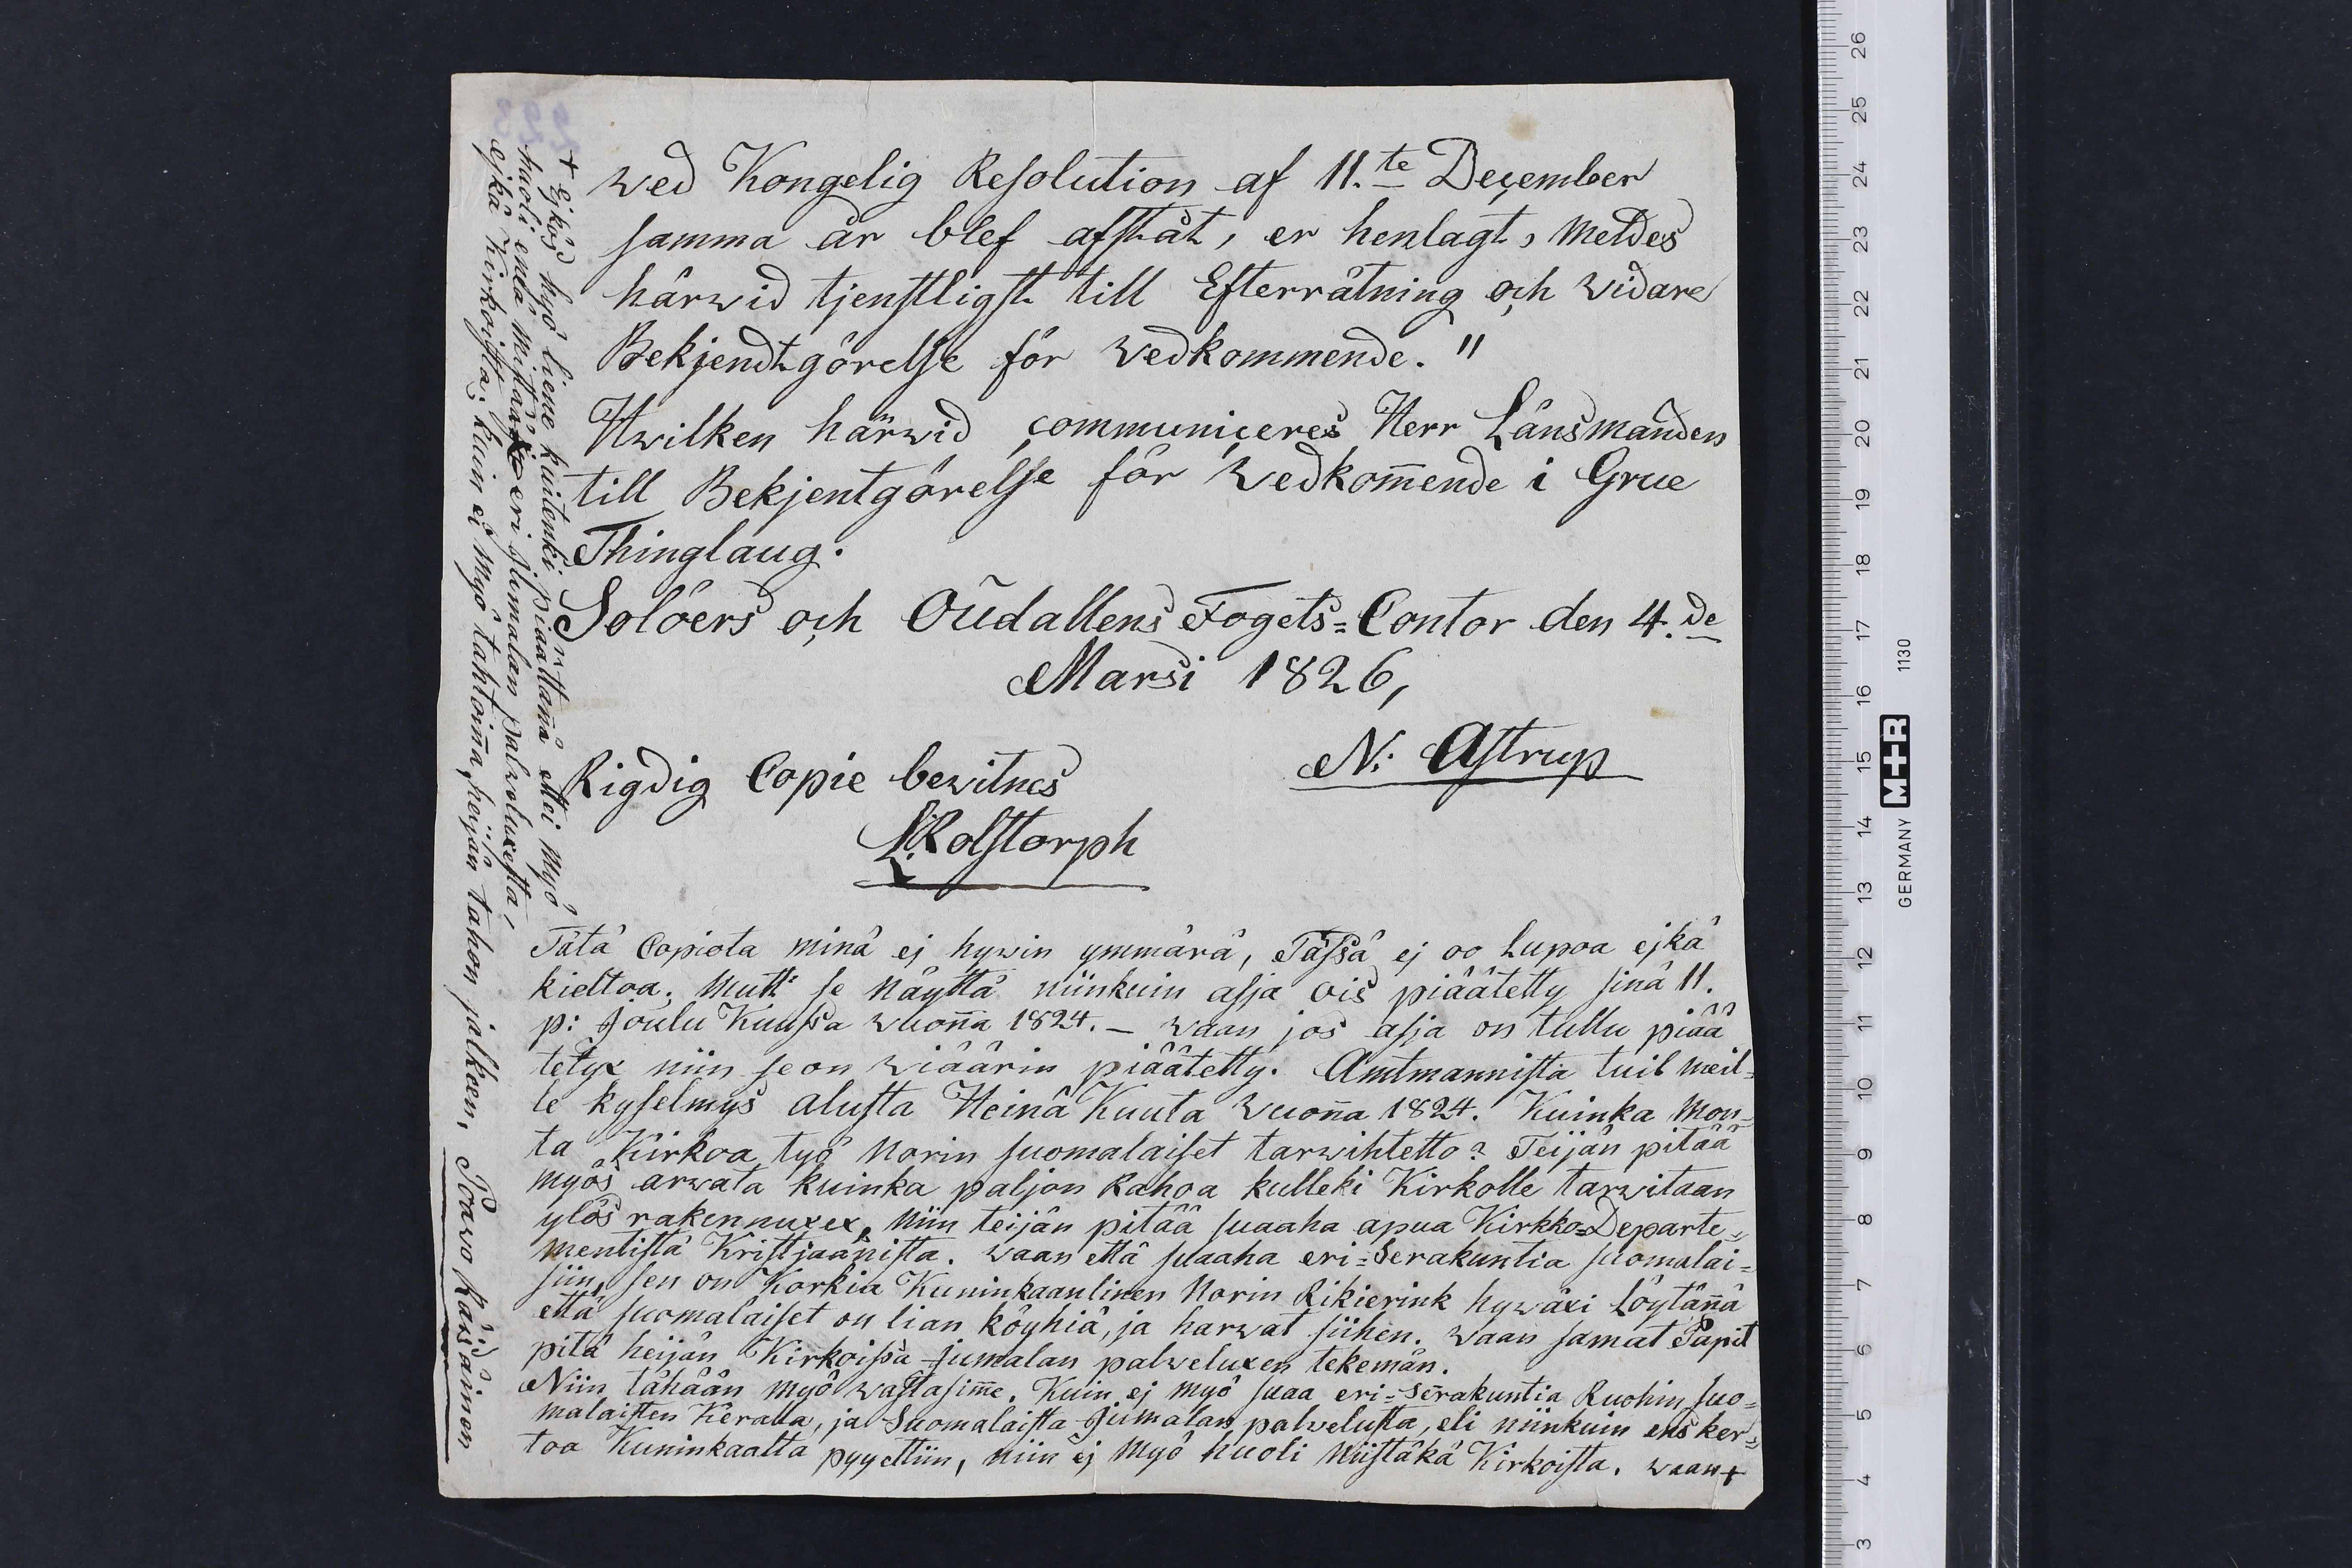 ved Kongelig Resolution af 11.te December
samma år blef afstått, er henlagt, meldes
härwid tjenstligst till Efterrätning och widare
Bekjendtgörelse för vedkommende."
Hwilken härwid communiceres Herr Länsmanden
till Bekjentgörelse för wedkom̄ende i Grue
Thinglaug.
Solöers och Oudallens Fogets=Contor den 4.de
Marsi 1826,
N: Astrup
Rigdig Copie bewitnes
L. Rolstorph
Tätä Copiota minä ej hywin ymmärä, Tässä ej oo Lupoa ejkä
kieltoa; mutt: se näyttä niinkuin asja ois piäätetty sinä 11.
p: Joulu Kuussa wuon̄a 1824. – waan jos asja on tullu piää
tetyx niin se on wiäärin piäätetty. Amtmannista tuil meil=
le kyselmys alusta Heinä Kuuta wuon̄a 1824. Kuinka mon=
ta Kirkoa työ Norin suomalaiset tarwihtetto? Teijän pitää
myös arwata kuinka paljon Rahoa kulleki Kirkolle tarwitaan
ylös rakennuxex, niin teijän pitää suaaha apua Kirkko=Departe=
mentistä Kristjaanista. waan että suaaha eri=Serakuntia suomalai=
siin, sen on Korkia Kuninkaanlinen Norin Rikierink hywäxi löytän̄ä
että suomalaiset on lian köyhiä, ja harwat siihen. waan samat Papit
pitä heijän Kirkoissa Jumalan palweluxen tekemän.
Niin tähään myö wastasim̄e. Kuin ej myö suaa eri=Serakuntia Ruohin suo=
malaisten Keralla, ja Suomalaista Jumalan palwelusta, eli niinkuin ens ker=
toa Kuninkaalta pyyettiin, niin ej myö huoli niistäkä Kirkoista. waan +
+ Ejköd hyö liene kuitenki piäältän̄ä ettei myö
huoli enää mistään eri Jumalan palweluxesta,
ejkä Kirkoista; kuin ei myö tahtoin̄a heijän tahon jälkeen. Poawo Räisäinen